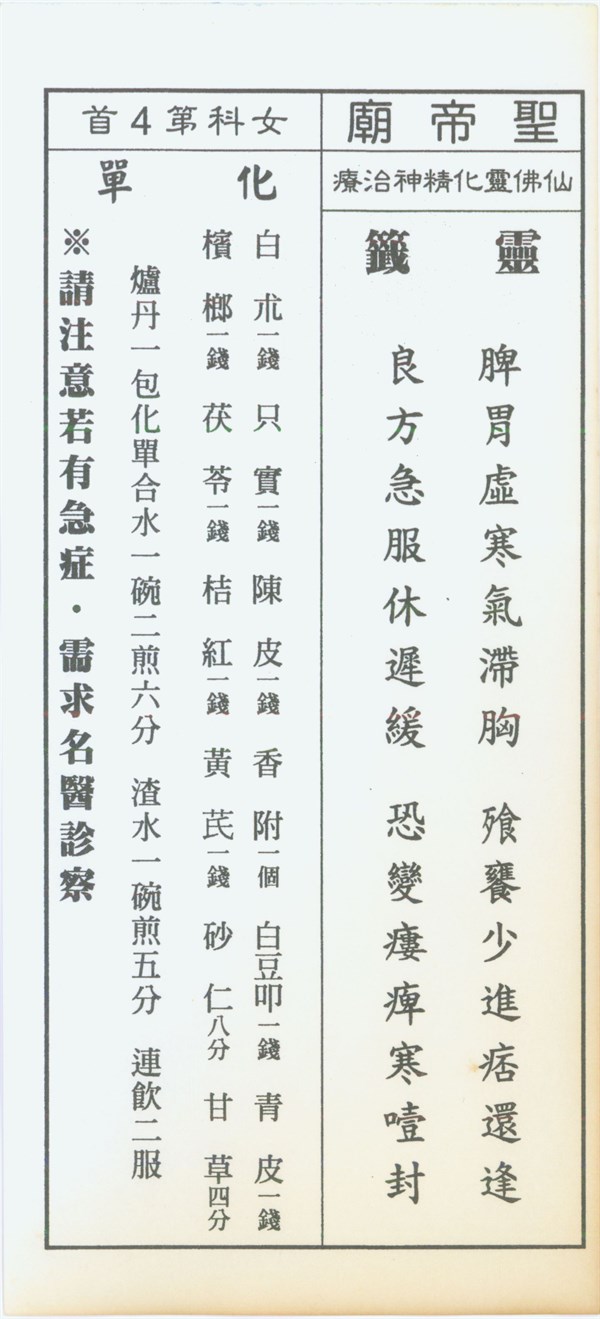 聖帝廟
仙佛靈化精神治療
靈籤
脾胃虛寒氣滯胸 飱饔少進痞還逢
良方急服休遲緩 恐變瘻痺寒噎封
女科第4首
化單
白朮一錢 只實一錢 陳皮一錢 香附一個 白豆叩一錢 青皮一錢
檳榔一錢 茯苓一錢 桔紅一錢 黃芪一錢 砂仁八分 甘草四分
爐丹一包化單合水一碗二煎六分 渣水一碗煎五分 連飲二服
※請注意若有急症・需求名醫診察